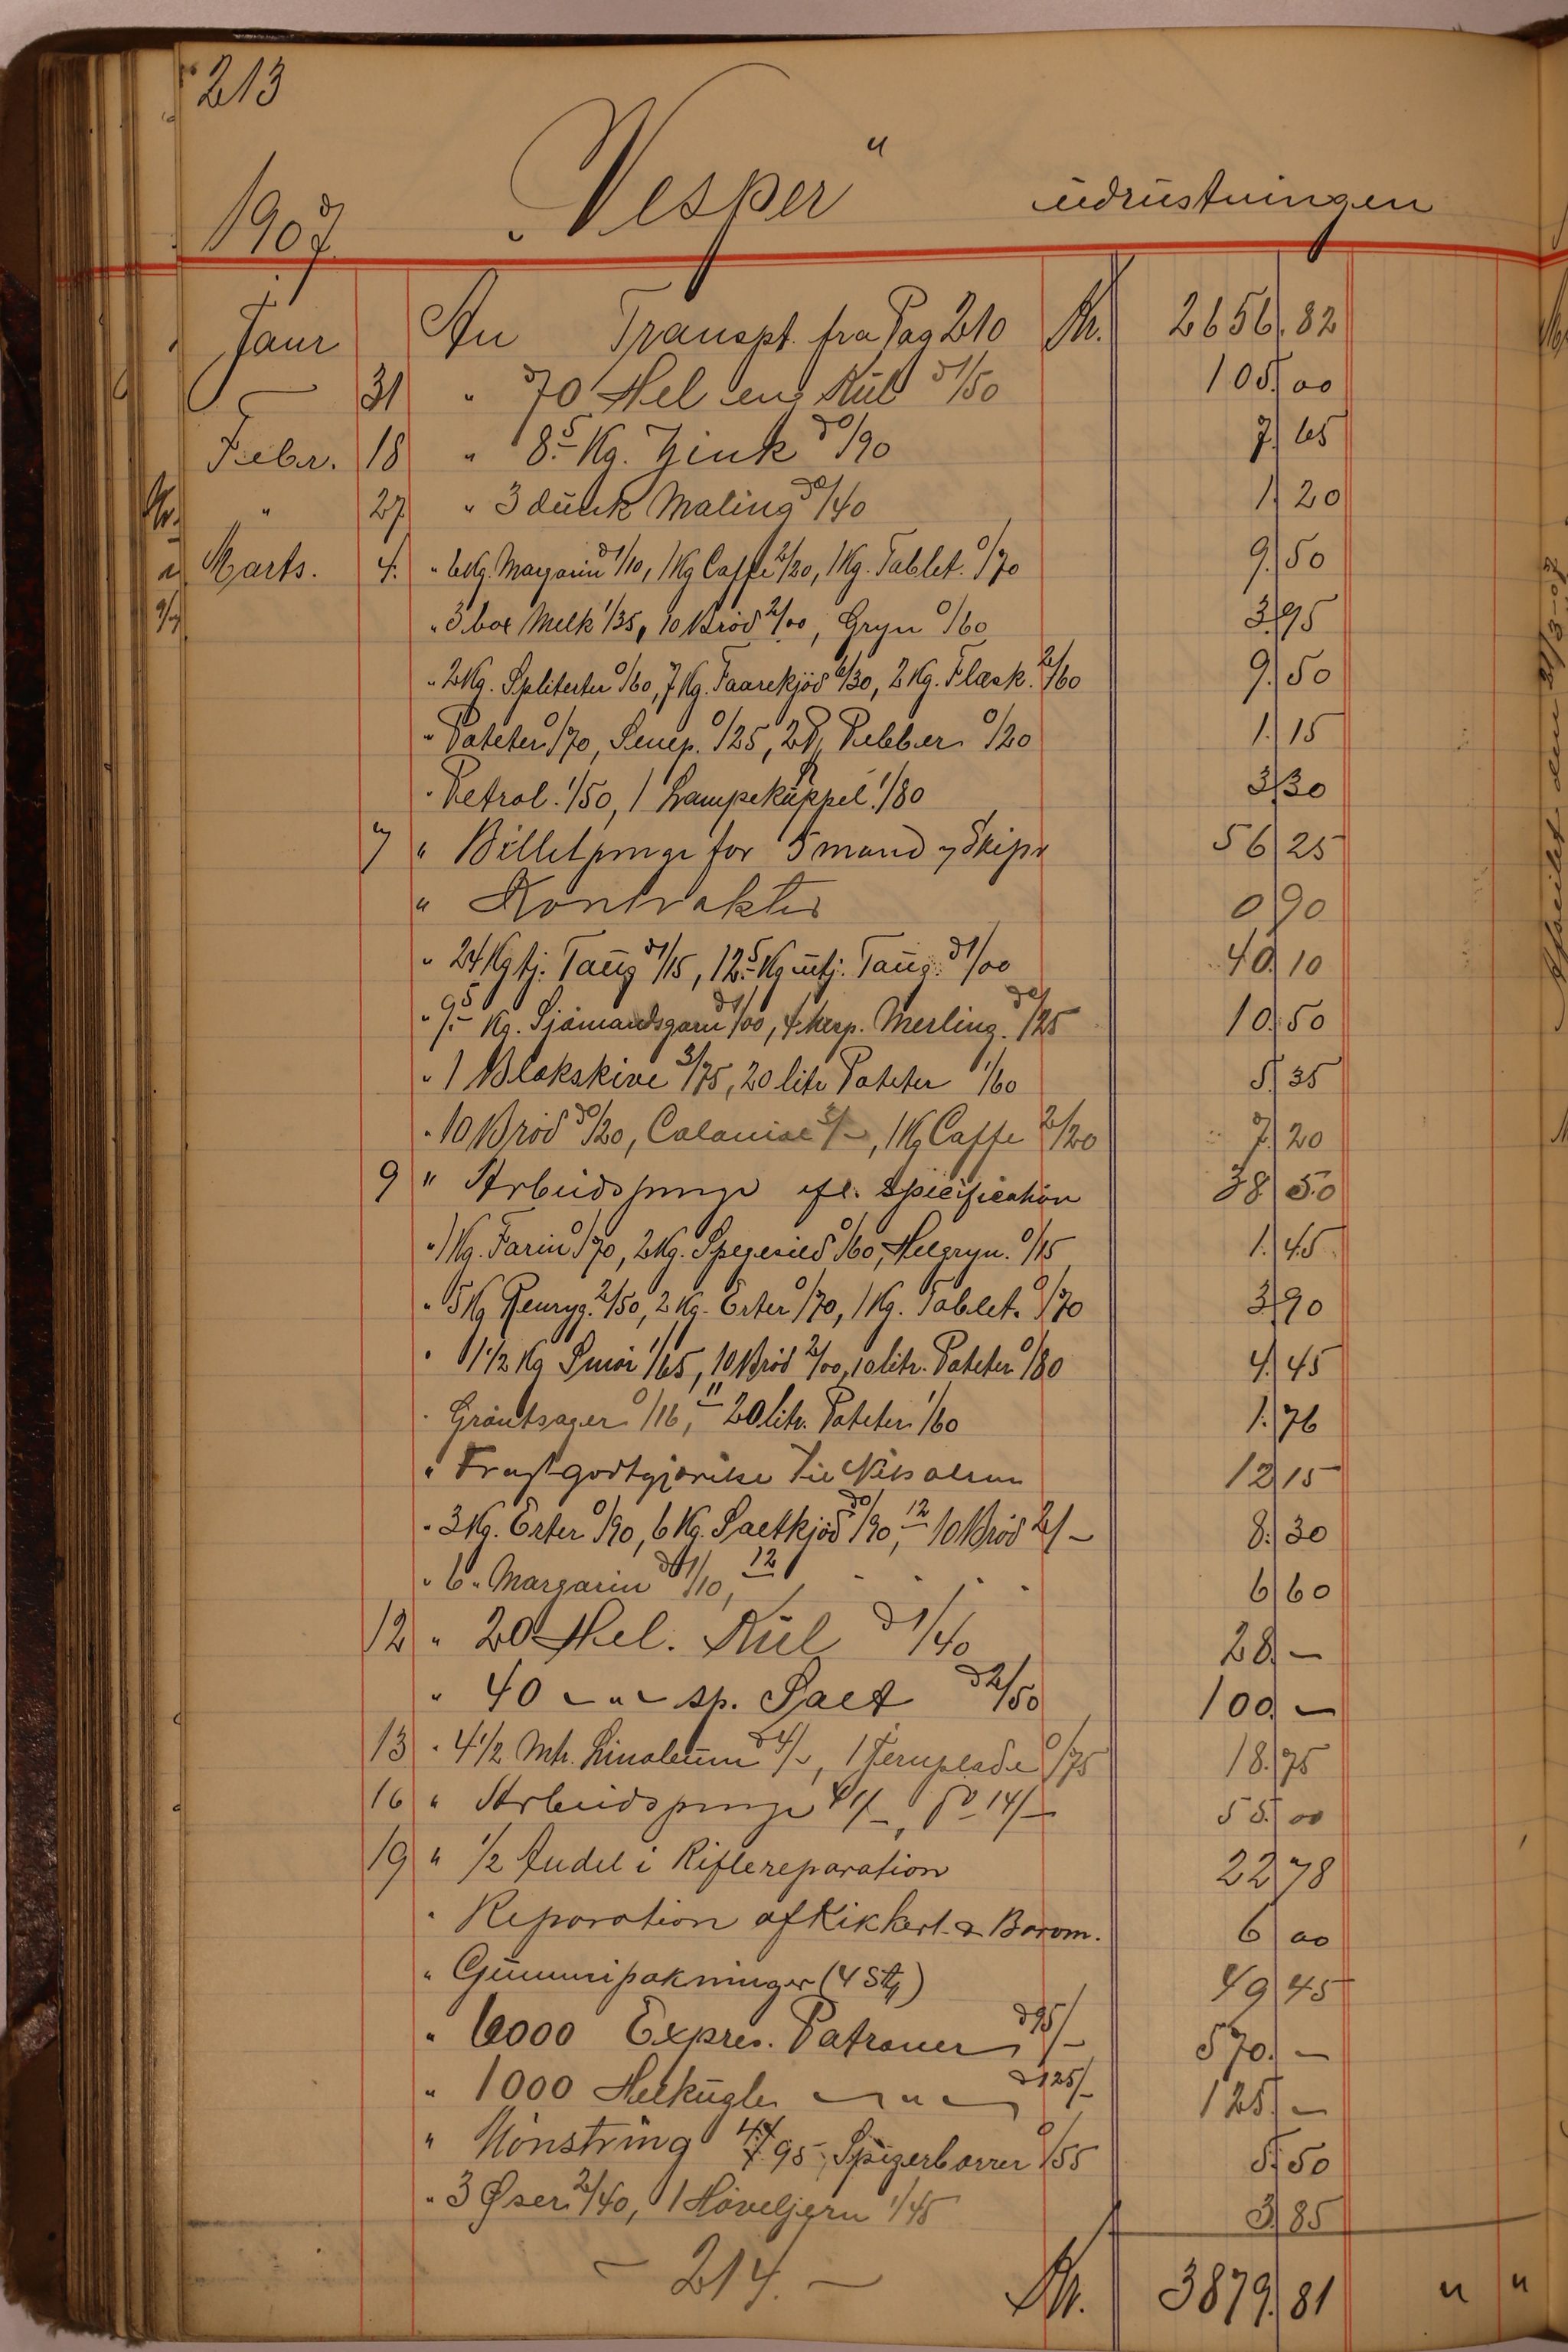 213
1907 „Vesper“ udrustningen
Janr An Transpt. fra Pag 210 Kr. 2656.82
31 " 70 Hel eng Kul à 1/50 105.00
Febr. 18 " 8.5 Kg. Zink à 0/90 7.65
" 27 " 3 dunk Maling à 0/40 1.20
Marts. 4. " 6 Kg. Margarin à 1/10, 1 Kg Caffe 2/20, 1 Kg. Tablet. 0/70 9.50
" 3 box Melk 1/35, 10 Bröd 2/00, Gryn 0/60 3.95
" 2 Kg. Spliterter 0/60, 7 Kg. Faarekjöd 6/30, 2 Kg. Flæsk. 2/60 9.50
" Poteter 0/70, Senep. 0/25, 2 Pebber. 0/20 1.15
" Petrol. 1/50, 1 Lampekuppel. 1/80 3.30
7 " Billetpenge for 5 mand Skipr 56.25
" Kontrakter 0.90
" 24 Kg tj. Taug à 1/15, 12.5 Kg utj. Taug. à 1/00 40.10
" 9.5 Kg. Sjömandsgarn à 1/00, 4 Merling. /25 10.50
" 1 Blokskive 3/75, 20 litr Poteter 1/60 5.35
" 10 Bröd à 0/20, Colonial 3/-, 1 Kg Caffe 2/20 7.20
9 " Arbeidspenge efl. Specification 38.50
" 1 Kg. Farin 0/70, 2 Kg. Spegesild 0/60, Helgryn. 0/15 1.45
" 5 Kg 2/50, 2 Kg. Erter 0/70, 1 Kg. Tablet. 0/70 3.90
" 1 1/2 Kg Smör 1/65, 10 Bröd 2/00, 10 litr. Poteter 0/80 4.45
" Gröntsager 0/16, 11 20 litr. Poteter 1/60 1.76
" Fragtgodtgjörelse til 12.15
" 3 Kg. Erter 0/90, 6 Kg. Saltkjöd à 0/90, 12 10 Bröd 2/- 8.30
" 6 " Margarin à 1/10, 12 6.60
12 " 20 Hel. Kul à 1/40 28.-
" 40 - " - sp. Salt à 2/50 100.-
13 " 4 1/2 Mtr. Linoleum à 4/-, 1 Jernplade 0/75 18.75
16 " Arbeidspenge 41/-, 14/- 55.00
19 " 1/2 Andel i Riflereparation 22.78
" Reparation af Kikkert & Barom. 6.00
" Gummipakninger (4 Stk) 49.45
" 6000 Expres. Patroner à 95/- 570.-
" 1000 Helkugle - " - à 125/- 125.-
" Mönstring 4/95, Spigerborrer 0/55 5.50
" 3 Øser 2/40, 1 Høveljern 1/45 3.85
- 214. - Kr. 3879.81 " "